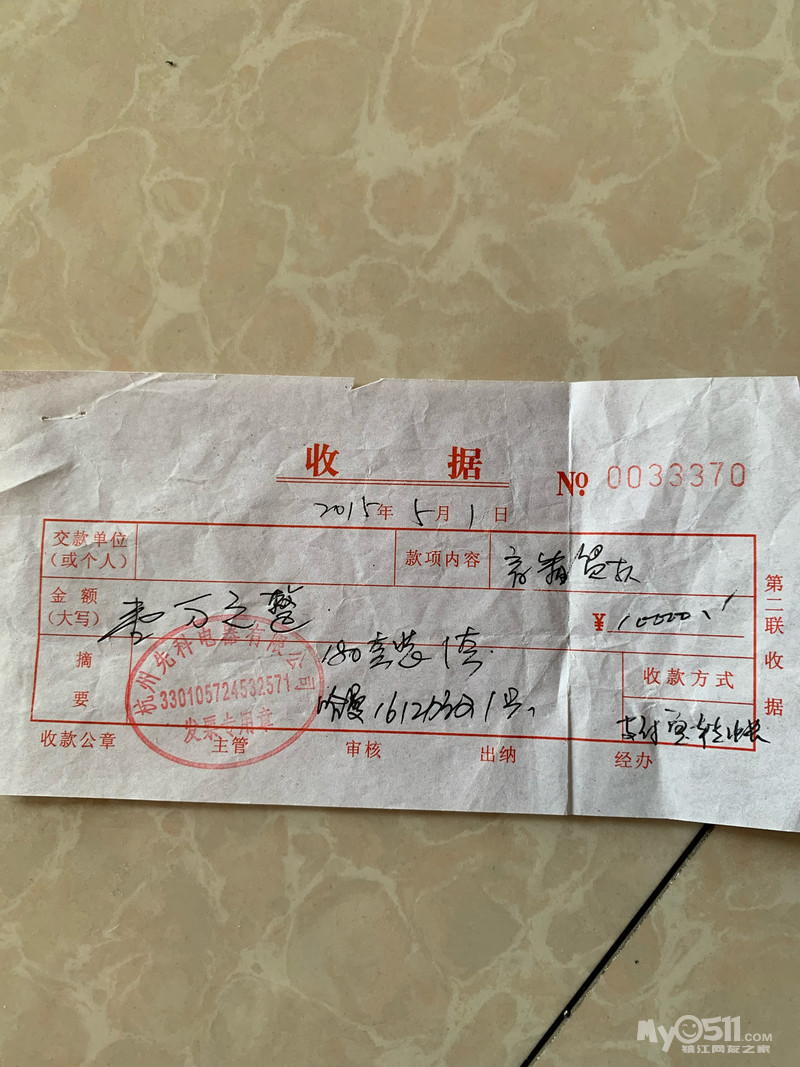 收 据
№ 0033370
2015年 5月 1日
交款单位
(或个人)
款项内容
音箱货款
金额
(大写)
壹万元整
¥ 10000.
摘要
180套装 1套
哈曼
收款方式
支付宝转账
杭州先科电器有限公司
330105724532571
发票专用章
收款公章 主管 审核 出纳 经办
第二联 收据
MyO511.COM
镇江网友之家